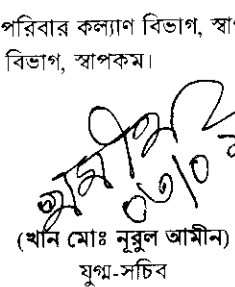 পরিবার কল্যাণ বিভাগ, স্বা
বিভাগ, স্বাপকম।
(খান মোঃ নূরুল আমীন)
যুগ্ম-সচিব